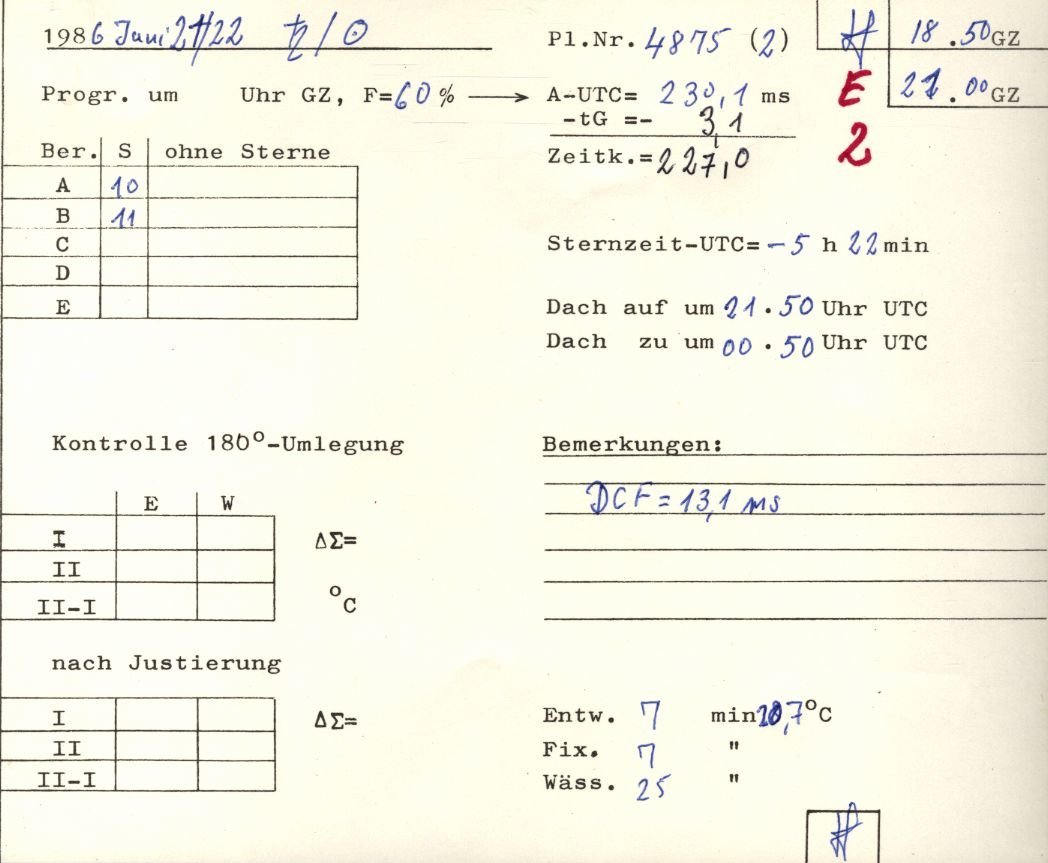 1986 Juni 21/22 ♄/☉
Pl.Nr. 4875 (2)
18.50 GZ
21.00 GZ
Progr. um Uhr GZ, F=60% → A-UTC= 230,1 ms
E
-tG =- 3,1
2
Zeitk.=227,0
Ber. S ohne Sterne
A 10
B 11
C
D
E
Sternzeit-UTC= -5 h 22 min
Dach auf um 21.50 Uhr UTC
Dach zu um 00.50 Uhr UTC
Kontrolle 180°-Umlegung
E W
I ΔΣ=
II
II-I °C
Bemerkungen:
DCF = 13,1 ms
nach Justierung
I ΔΣ=
II
II-I
Entw. 7 min °C
Fix. 7 "
Wäss. 25 "